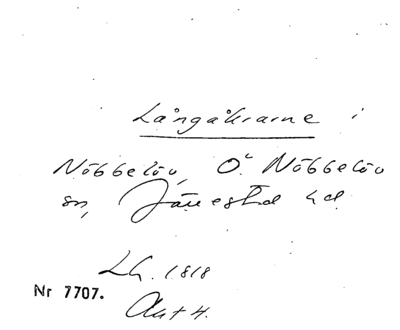 Långåkrarne i
Nöbbelöv, Ö. Nöbbelöv
sn, Järrestad hd
Lh. 1818
Nr 7707.
Akt 4.